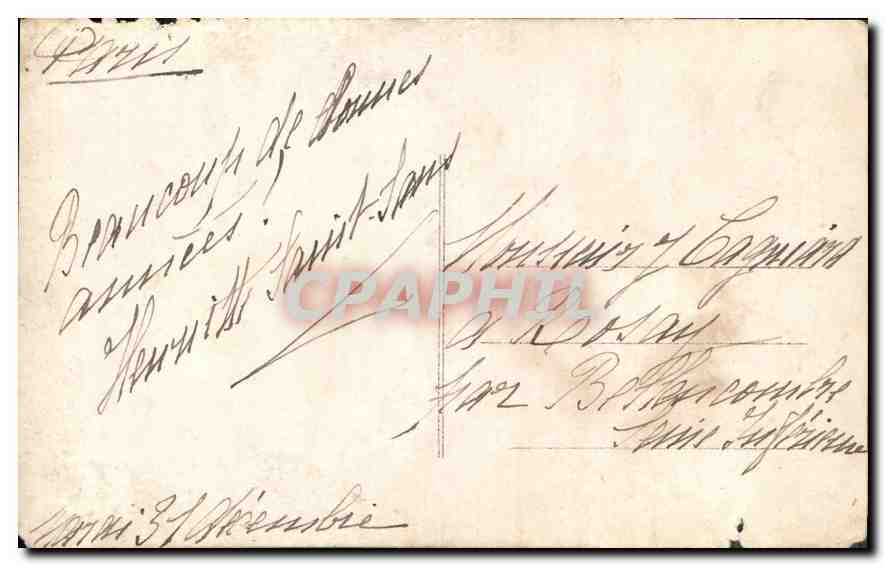 Paris
Beaucoup de bonnes
années.
Henriette Saint-Sans
Monsieur J Cagniard
a Rosay
par Bellencombre
Seine Inférieure
mardi 31 décembre
CPAPHIL